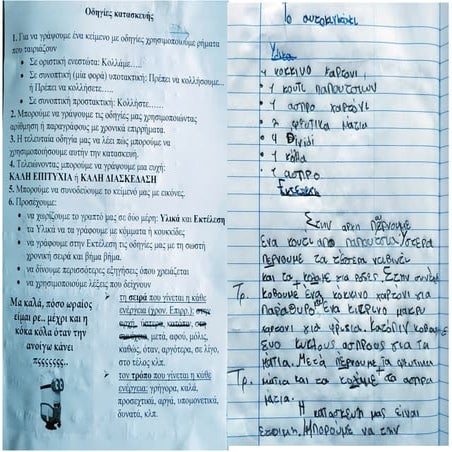 Οδηγίες κατασκευής
1. Για να γράψουμε ένα κείμενο με οδηγίες χρησιμοποιούμε ρήματα
που ταιριάζουν
• Σε οριστική ενεστώτα: Κολλάμε.....
• Σε συνοπτική (μία φορά) υποτακτική: Πρέπει να κολλήσουμε...
ή Πρέπει να κολλήσετε.....
• Σε συνοπτική προστακτική: Κολλήστε......
2. Μπορούμε να γράψουμε τις οδηγίες μας χρησιμοποιώντας
αρίθμηση ή παραγράφους με χρονικά επιρρήματα.
3. Η τελευταία οδηγία μας να λέει πώς μπορούμε να
χρησιμοποιήσουμε αυτήν την κατασκευή.
4. Τελειώνοντας μπορούμε να γράψουμε μια ευχή:
ΚΑΛΗ ΕΠΙΤΥΧΙΑ ή ΚΑΛΗ ΔΙΑΣΚΕΔΑΣΗ
5. Μπορούμε να συνοδεύσουμε το κείμενό μας με εικόνες.
6. Προσέχουμε:
• να χωρίζουμε το γραπτό μας σε δύο μέρη: Υλικά και Εκτέλεση
• τα Υλικά να τα γράφουμε με κόμματα ή κουκκίδες
• να γράφουμε στην Εκτέλεση τις οδηγίες μας με τη σωστή
χρονική σειρά και βήμα βήμα.
• να δίνουμε περισσότερες εξηγήσεις όπου χρειάζεται
• να χρησιμοποιούμε λέξεις που δείχνουν
➢ τη σειρά που γίνεται η κάθε
ενέργεια (χρον. Επιρρ.): στην
αρχή, ύστερα, κατόπιν,
μετά, αφού, μόλις,
καθώς, όταν, αργότερα, σε λίγο,
στο τέλος κλπ.
➢ τον τρόπο που γίνεται η κάθε
ενέργεια: γρήγορα, καλά,
προσεχτικά, αργά, υπομονετικά,
δυνατά, κλπ.
Μα καλά, πόσο ωραίος
είμαι ρε.. μέχρι και η
κόκα κόλα όταν την
ανοίγω κάνει
πςςςςςςς..
Το αυτοκινητάκι
Υλικά
• 1 κόκκινο χαρτόνι,
• 1 κουτί παπουτσιών
• 1 άσπρο χαρτόνι
• 2 ψεύτικα μάτια
• 1 κόλλα
• 1 άσπρο
Εκτέλεση
Στην αρχή πέρνουμε
ένα κουτί από παπούτσια,
και τα κολάμε για ρόδες. Στην συνέχεια
Τρ. κόβουμε ένα κόκκινο χαρτόνι για
παράθυρο, ένα κίτρινο μακρύ
χαρτόνι για
κύκλους άσπρους για τα
μάτια. Μετά πέρνουμε τα ψεύτικα
Τρ. μάτια και τα κολάμε στα άσπρα
μάτια.
Η κατασκευή μας είναι
έτοιμη. Μπορούμε να την